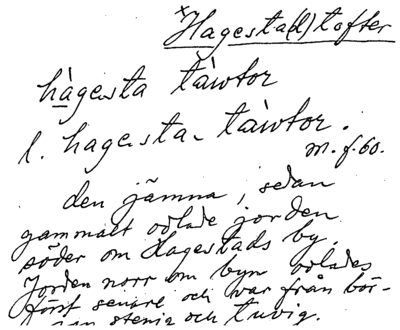 ×Hagesta(d)tofter
hàgesta tàwtor
l. hagesta- tàwtor.
m. f. 60.
den jämna, sedan
gammalt odlade jorden
söder om Hagestads by.
Jorden norr om byn odlades
först senare och var från bör-
jan stenig och tuvig.